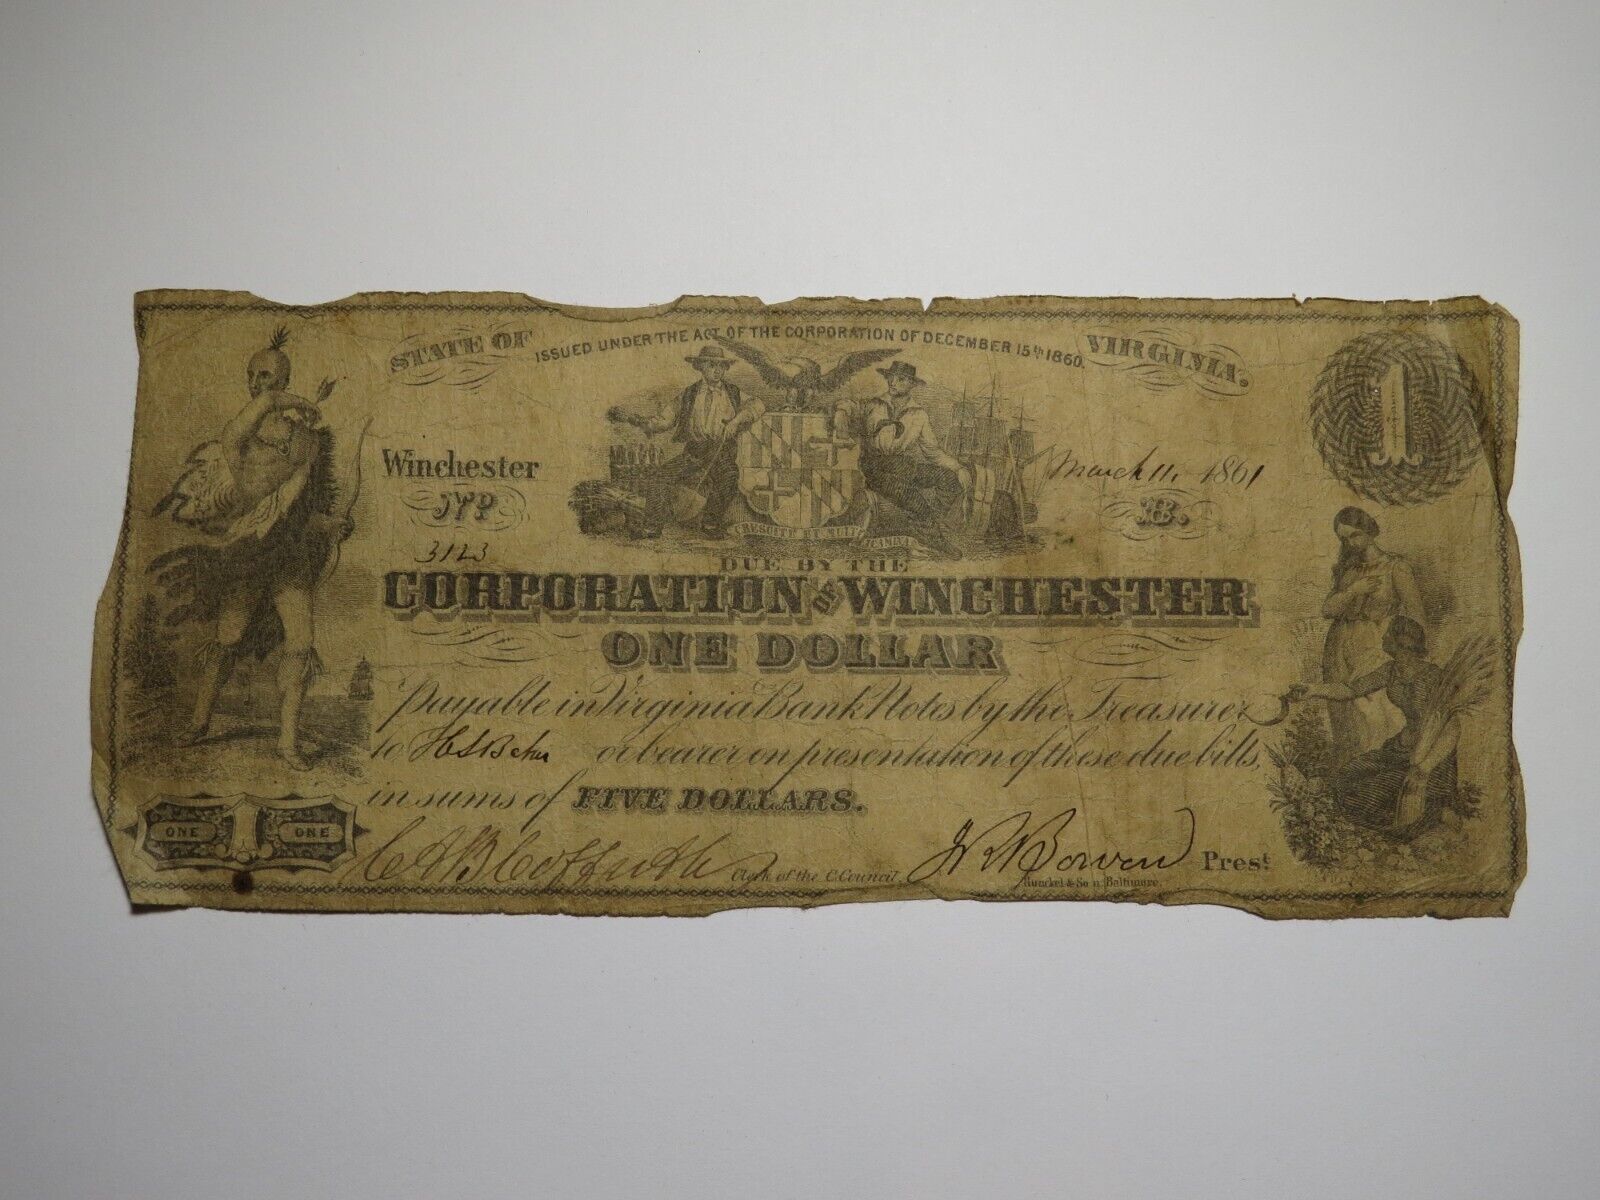 STATE OF ISSUED UNDER THE ACT OF THE CORPORATION OF DECEMBER 15th 1860. VIRGINIA.
1
Winchester March 11, 1861
No B.
3123
CRESCITE ET MULTIPLICAMINI
DUE BY THE
CORPORATION OF WINCHESTER
ONE DOLLAR
Payable in Virginia Bank Notes by the Treasurer
to H S Baker or bearer on presentation of these due bills,
in sums of FIVE DOLLARS.
ONE 1 ONE
Clerk of the C. Council. Bowen Prest.
Baltimore.